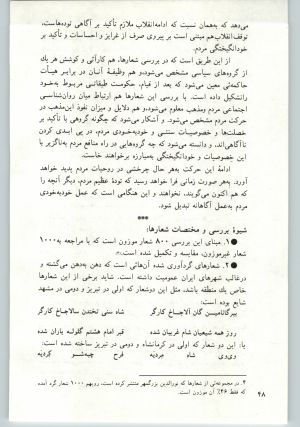 می‌دهد که به‌همان نسبت که ادامه‌انقلاب ملازم تأکید بر آگاهی توده‌هاست،
توقف‌انقلاب‌هم مبتنی است بر پیروی صرف از غرایز و احساسات و تأکید بر
خودانگیختگی مردم.
از این طریق است که در بررسی شعارها، هم کارآئی و کوشش هر یک
از گروه‌های سیاسی مشخص می‌شود، و هم وظیفهٔ آنان در برابر هیأت
حاکمه‌ئی معین می‌شود که بعد از قیام، حکومت طبقاتی مربوط به‌خود
راتشکیل داده است. با بررسی این شعارها هم ارتباط میان روان‌شناسی
اجتماعی مردم ومذهب معلوم می‌شود، و هم دلایل و میزان نفوذ این‌مذهب در
حرکت مردم. و آشکار می‌شود که چگونه گروهی با تأکید بر
خصلت‌ها و خصوصیات سنتی و خودبه‌خودی مردم، در پی ابدی کردن
ناآگاهی‌اند، و دانسته می‌شود که چه گروه‌هایی در راه منافع مردم به‌ناگزیر با
این خصوصیات و خودانگیختگی به‌مبارزه برخواهند خاست.
ادامهٔ این حرکت به‌هر حال چرخشی در روحیات مردم پدید خواهد
آورد. به‌هر صورت زمانی فرا خواهد رسید که تودهٔ عظیم مردم، دیگر آنچه را
که هم اکنون می‌گویند، نخواهند گفت و این هنگامی است که عمل خودبه‌خودی
مردم به‌عمل آگاهانه تبدیل شود.
***
شیوهٔ بررسی و مختصات شعارها:
● ۱. مبنای این بررسی ۸۰۰ شعار موزون است که با مراجعه به‌۱۰۰۰
شعار غیرموزون، مقایسه و تکمیل شده است.
● ۲. شعارهای گردآوری شده آن‌هائی است که دهن به‌دهن می‌گشته و
درغالب شهرهای ایران عمومیت داشته است. شاید برخی از این شعارها
خاص یك منطقه باشد، مثل این دوشعار که اولی در تبریز و دومی در مشهد
شایع بوده است:
بیرگناهمین گن آلاجاخ کارگر شاه سنی تختدن سالاجاخ کارگر
روز همه شیعیان شام غریبان شده قبر امام هشتم گلوله باران شده
یا: این دو شعار که اولی در کرمانشاه و دومی در تبریز ساخته شده است:
وی‌وی شاه مردیه فرح چیه‌شو کردیه
۴. در مجموعه‌ئی از شعارها که نورالدین بزرگمهر منتشر کرده است، رویهم ۱۰۰۰ شعار گرد آمده
که فقط ۴۶٪ آن موزون است.
۴۸